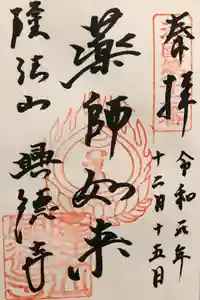 奉拝
令和元年
十二月十五日
薬師如来
興徳寺